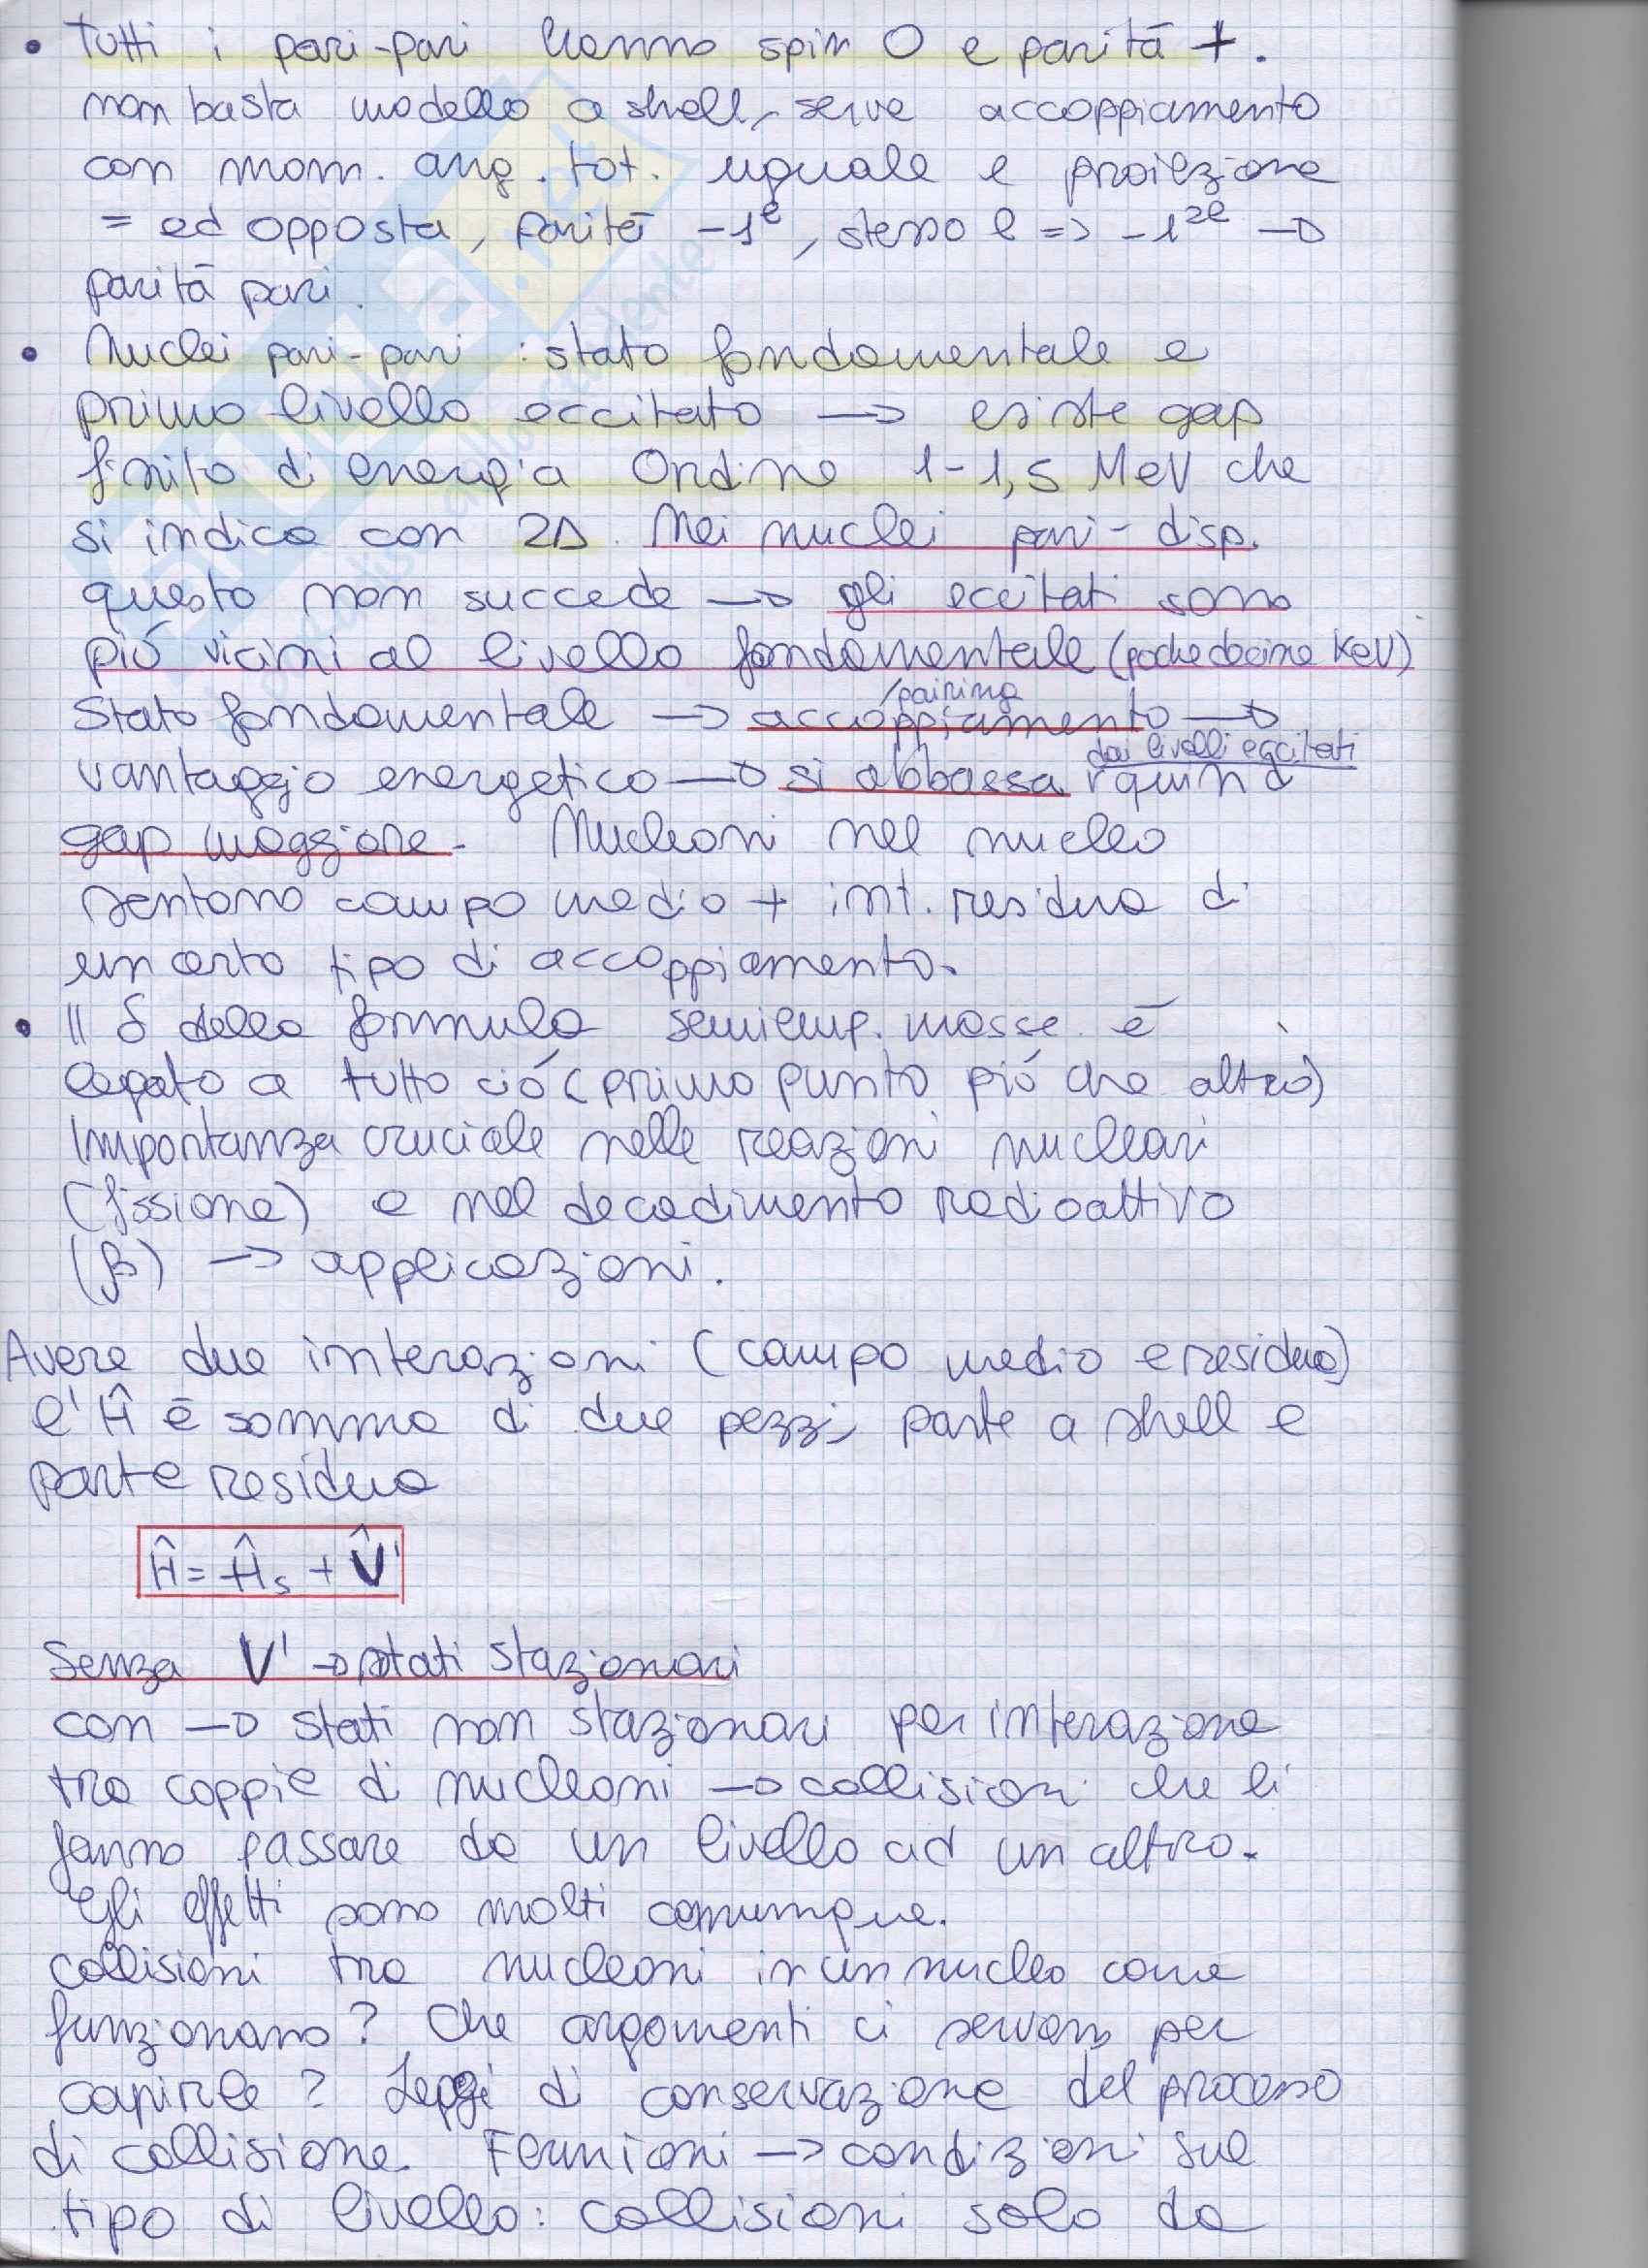 • Tutti i pari-pari hanno spin 0 e parità +.
non basta modello a shell, serve accoppiamento
con mom. ang. tot. uguale e proiezione
= ed opposta, parità -1^l, stesso l => -1^2l →
parità pari.
• Nuclei pari-pari : stato fondamentale e
primo livello eccitato → esiste gap
finito di energia ordine 1-1,5 MeV che
si indica con 2Δ. Nei nuclei pari-disp.
questo non succede → gli eccitati sono
più vicini al livello fondamentale (poche decine KeV)
/pairing
Stato fondamentale → accoppiamento →
dai livelli eccitati
vantaggio energetico → si abbassa quindi
gap maggiore. Nucleoni nel nucleo
sentono campo medio + int. residua di
un certo tipo di accoppiamento.
• Il δ della formula semiemp. masse è
legato a tutto ciò (primo punto più che altro)
Importanza cruciale nelle reazioni nucleari
(fissione) e nel decadimento radioattivo
(β) → applicazioni.
Avere due interazioni (campo medio e residua)
l'Ĥ è somma di due pezzi, parte a shell e
parte residua
Ĥ = Ĥs + V̂'
Senza V' → stati stazionari
con → stati non stazionari per interazione
tra coppie di nucleoni → collisioni che li
fanno passare da un livello ad un altro.
Gli effetti sono molti comunque.
Collisioni tra nucleoni in un nucleo come
funzionano? Che argomenti ci servono per
capirle? Leggi di conservazione del processo
di collisione. Fermioni → condizioni sul
tipo di livello: collisioni solo da